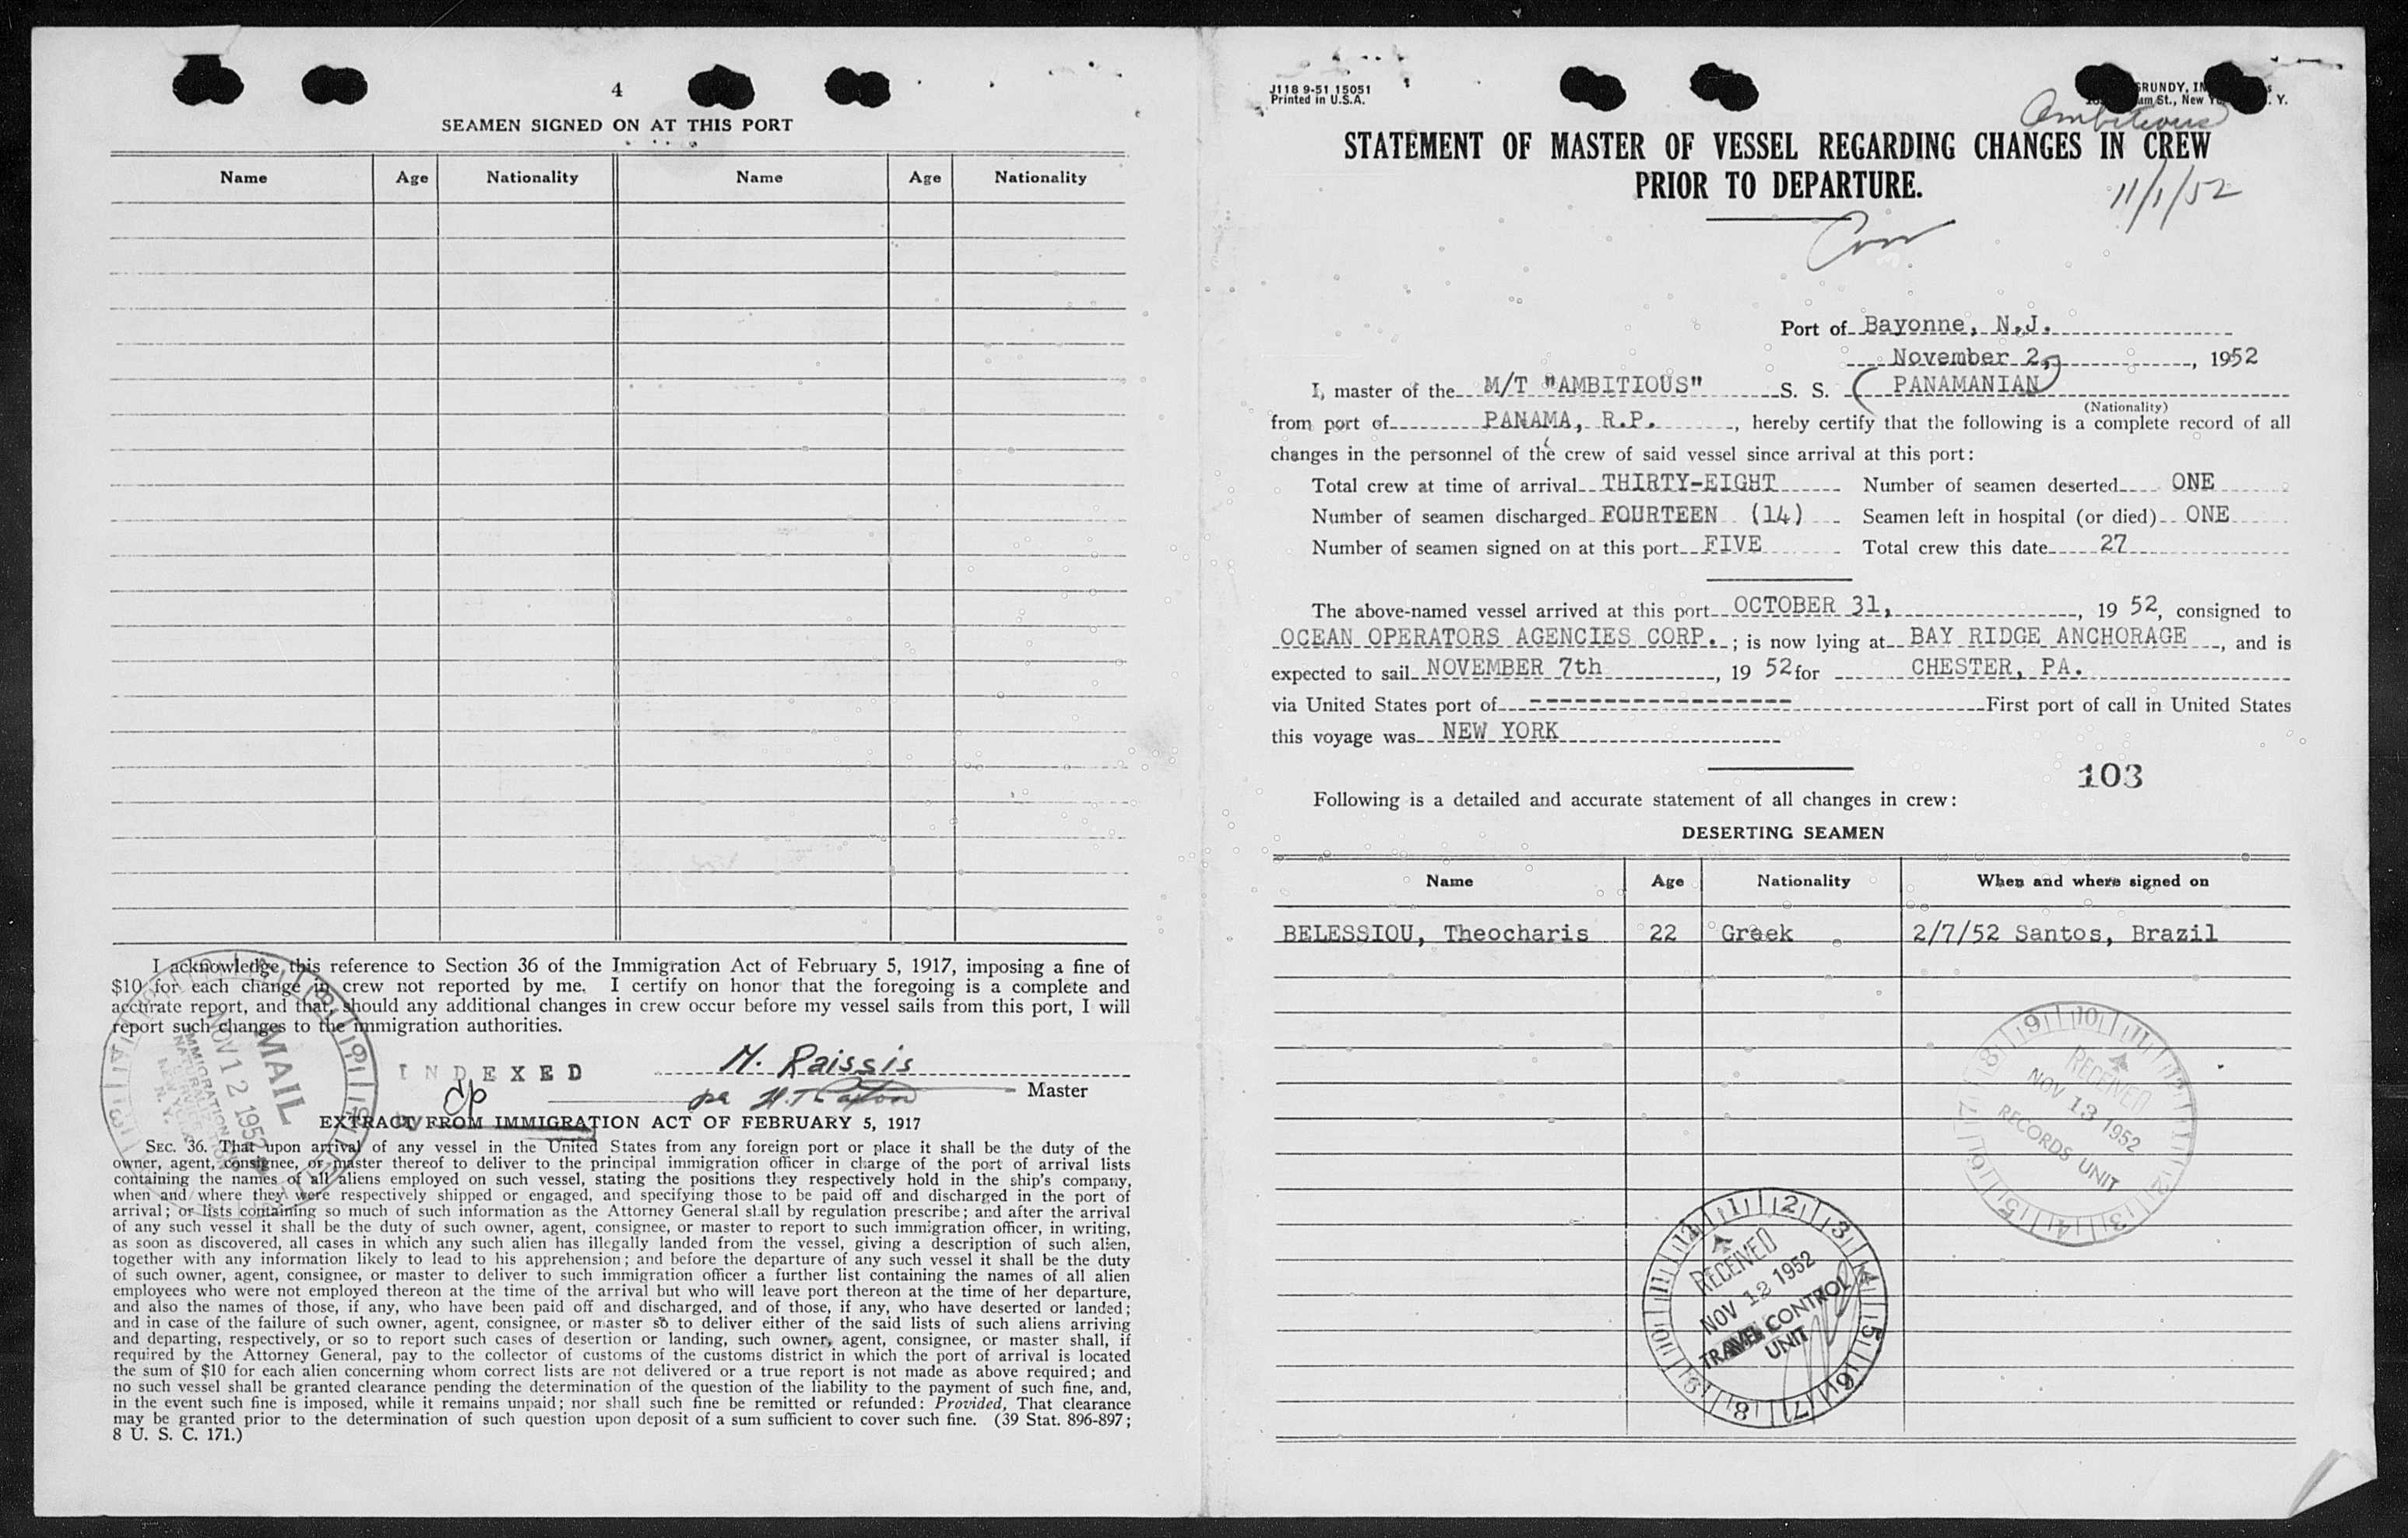 4
SEAMEN SIGNED ON AT THIS PORT
Name Age Nationality Name Age Nationality
I acknowledge this reference to Section 36 of the Immigration Act of February 5, 1917, imposing a fine of
$10 for each change in crew not reported by me. I certify on honor that the foregoing is a complete and
accurate report, and that, should any additional changes in crew occur before my vessel sails from this port, I will
report such changes to the immigration authorities.
MAIL
NOV 12 1952
IMMIGRATION
N. Y.
INDEXED
M. Raissis
Master
EXTRACT FROM IMMIGRATION ACT OF FEBRUARY 5, 1917
SEC. 36. That upon arrival of any vessel in the United States from any foreign port or place it shall be the duty of the
owner, agent, consignee, or master thereof to deliver to the principal immigration officer in charge of the port of arrival lists
containing the names of all aliens employed on such vessel, stating the positions they respectively hold in the ship's company,
when and where they were respectively shipped or engaged, and specifying those to be paid off and discharged in the port of
arrival; or lists containing so much of such information as the Attorney General shall by regulation prescribe; and after the arrival
of any such vessel it shall be the duty of such owner, agent, consignee, or master to report to such immigration officer, in writing,
as soon as discovered, all cases in which any such alien has illegally landed from the vessel, giving a description of such alien,
together with any information likely to lead to his apprehension; and before the departure of any such vessel it shall be the duty
of such owner, agent, consignee, or master to deliver to such immigration officer a further list containing the names of all alien
employees who were not employed thereon at the time of the arrival but who will leave port thereon at the time of her departure,
and also the names of those, if any, who have been paid off and discharged, and of those, if any, who have deserted or landed;
and in case of the failure of such owner, agent, consignee, or master so to deliver either of the said lists of such aliens arriving
and departing, respectively, or so to report such cases of desertion or landing, such owner, agent, consignee, or master shall, if
required by the Attorney General, pay to the collector of customs of the customs district in which the port of arrival is located
the sum of $10 for each alien concerning whom correct lists are not delivered or a true report is not made as above required; and
no such vessel shall be granted clearance pending the determination of the question of the liability to the payment of such fine, and,
in the event such fine is imposed, while it remains unpaid; nor shall such fine be remitted or refunded: Provided, That clearance
may be granted prior to the determination of such question upon deposit of a sum sufficient to cover such fine. (39 Stat. 896-897;
8 U. S. C. 171.)
J118 9-51 15051
Printed in U.S.A.
St., New Y. Y.
Ambitious
STATEMENT OF MASTER OF VESSEL REGARDING CHANGES IN CREW
PRIOR TO DEPARTURE.
11/1/52
Port of Bayonne, N.J.
November 2, 1952
I, master of the M/T "AMBITIOUS" S. S. (PANAMANIAN)
(Nationality)
from port of PANAMA, R.P., hereby certify that the following is a complete record of all
changes in the personnel of the crew of said vessel since arrival at this port:
Total crew at time of arrival THIRTY-EIGHT Number of seamen deserted ONE
Number of seamen discharged FOURTEEN (14) Seamen left in hospital (or died) ONE
Number of seamen signed on at this port FIVE Total crew this date 27
The above-named vessel arrived at this port OCTOBER 31, 1952, consigned to
OCEAN OPERATORS AGENCIES CORP.; is now lying at BAY RIDGE ANCHORAGE, and is
expected to sail NOVEMBER 7th, 1952 for CHESTER, PA.
via United States port of ---------------------- First port of call in United States
this voyage was NEW YORK
103
Following is a detailed and accurate statement of all changes in crew:
DESERTING SEAMEN
Name Age Nationality When and where signed on
BELESSIOU, Theocharis 22 Greek 2/7/52 Santos, Brazil
RECEIVED
NOV 13 1952
RECORDS UNIT
RECEIVED
NOV 12 1952
TRAVEL CONTROL
UNIT